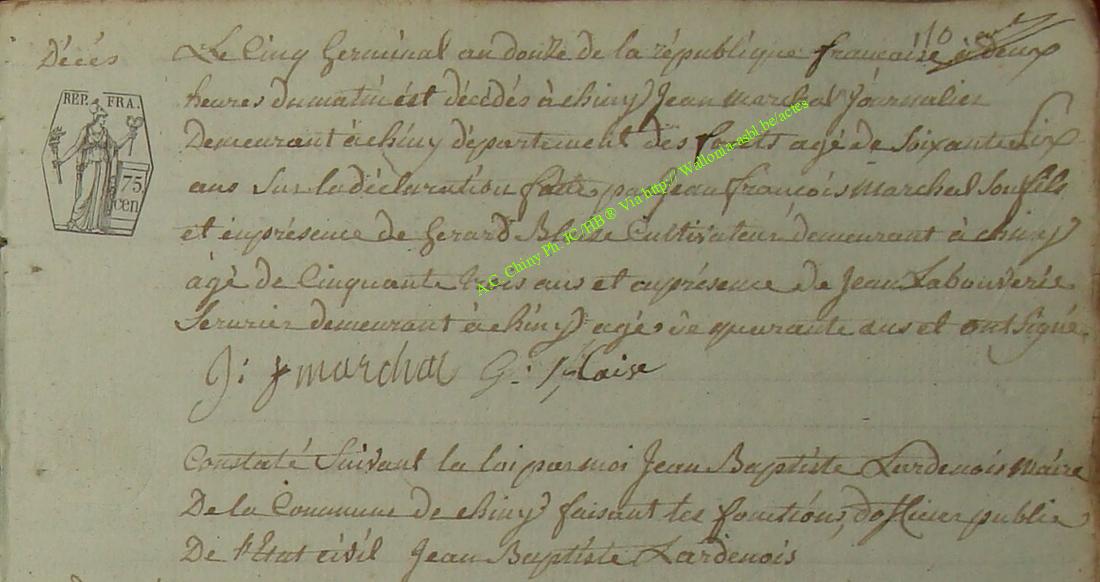 10
Décés
Le Cinq Germinal an douze de la république française à deux
heures du matin est décédés à chiny Jean marchal Journalier
Demeurant à chiny département des forêts agé de soixante Six
ans Sur la déclaration faite par Jean françois marchal son fils
et en présence de Gerard Blaise Cultivateur demeurant à chiny
âgé de Cinquante trois ans et en présence de Jean Labouverie
Serurier demeurant à chiny agé de quarante ans et ont Signé.
J: f marchal G: Blaise
REP. FRA.
75
cen.
Constaté Suivant la loi par moi Jean Baptiste Lardenois maire
De la Commune de chiny faisant les fonctions d'officier public
De l'Etat civil Jean Baptiste Lardenois
A.C. Chiny Ph. JC/HB® Via http:// Wallonia-asbl.be/actes